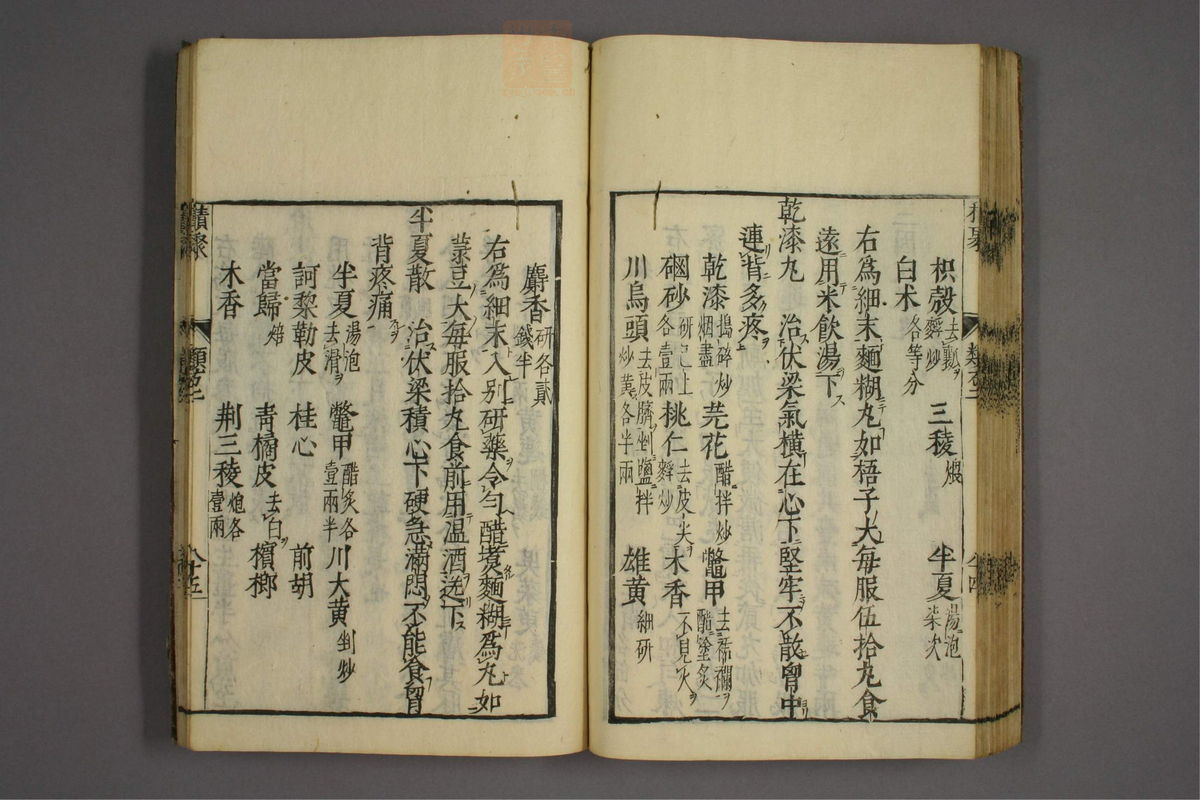 枳殼去瓤麩炒 三稜煨 半夏湯泡柒次
白术各等分
右為細末麵糊丸如梧子大每服伍拾丸食
遠用米飲湯下
乾漆丸 治伏梁氣橫在心下堅牢不散胷中
連背多疼
乾漆搗碎炒烟盡 芫花醋拌炒 鼈甲去裙襴醋塗炙
硇砂研已上各壹兩 桃仁去皮尖麩炒 木香不見火
川烏頭去皮臍剉鹽拌炒黃各半兩 雄黃細研
積聚 類卷二 八十四
麝香研各貳錢半
右為細末入別研藥令勻醋煑麵糊為丸如
菉豆大每服拾丸食前用温酒送下
半夏散 治伏梁積心下硬急滿悶不能食胷
背疼痛
半夏湯泡去滑 鼈甲醋炙各壹兩半 川大黃剉炒
訶黎勒皮 桂心 前胡
當歸焙 靑橘皮去白 檳榔
木香 荆三稜炮各壹兩
積聚 類卷二 八十五